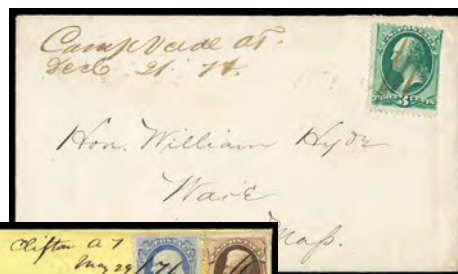 Camp Verde AT.
Decb 21. 74.
Hon. William Hyde
Ware
Mass.
Clifton AT
May 29